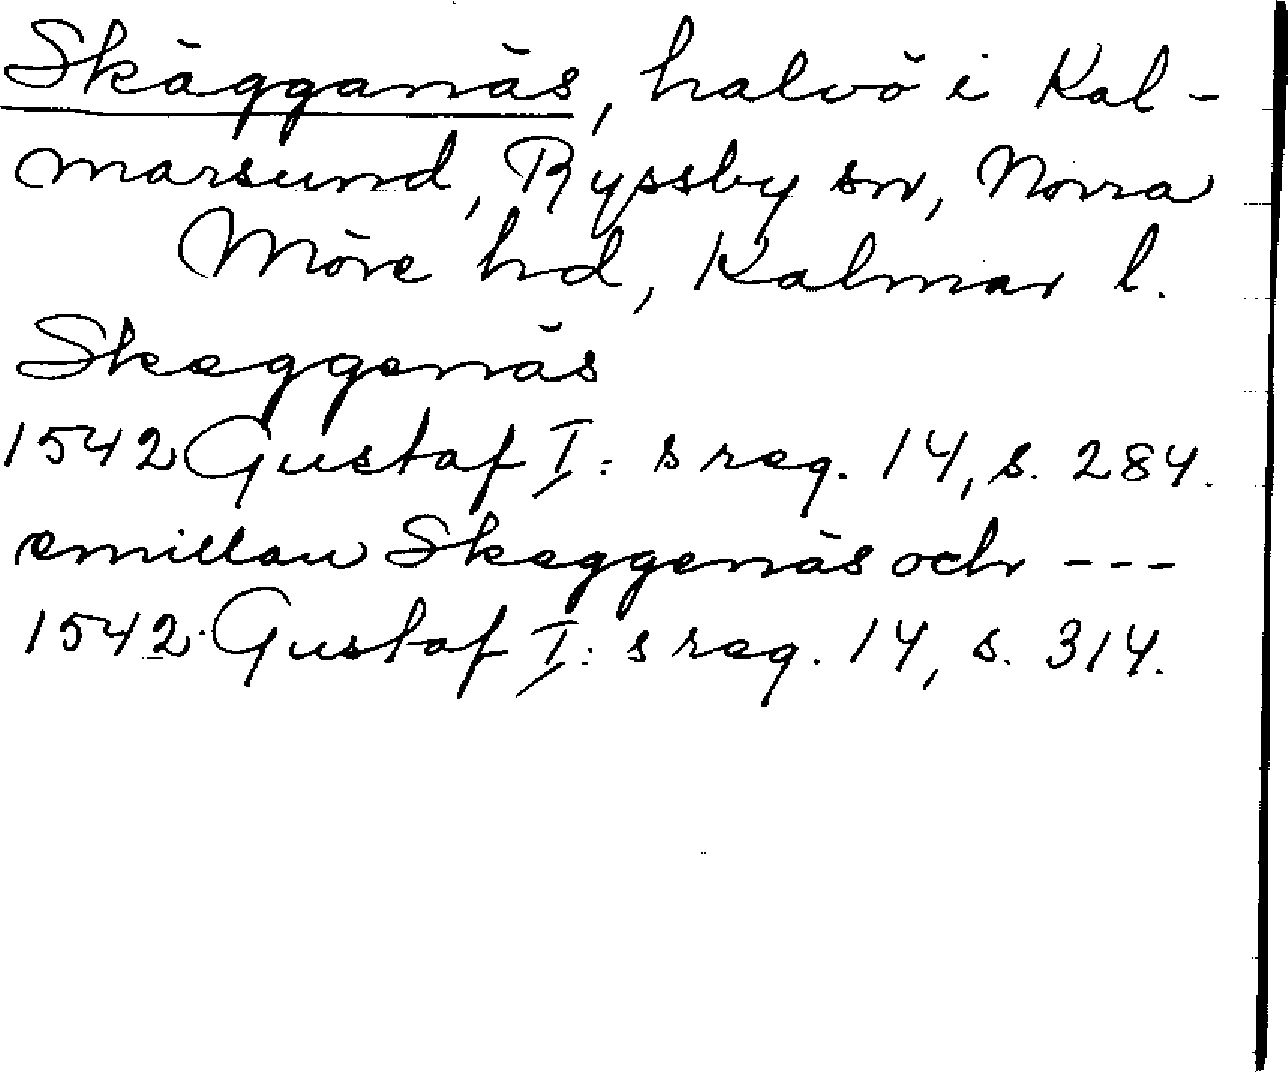 Skägganäs, halvö i Kal-
marsund, Ryssby sn, Norra
Möre hd, Kalmar l.
Skeggenäs
1542 Gustaf I:s reg. 14, s. 284.
emillan Skeggenäs och ---
1542 Gustaf I:s reg. 14, s. 314.